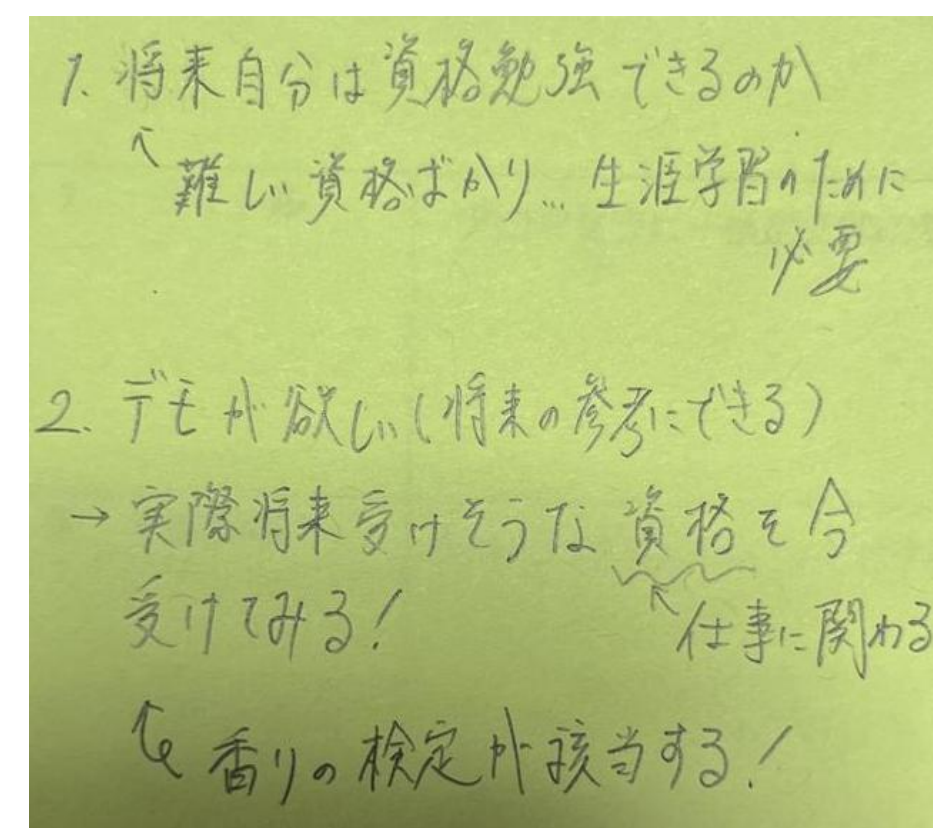 1. 将来自分は資格勉強できるのか
↖ 難しい資格ばかり... 生涯学習のために
必要
2. デモが欲しい(将来の参考にできる)
→ 実際将来受けそうな資格を今
受けてみる!
↖ 仕事に関わる
↖ 香りの検定が該当する!